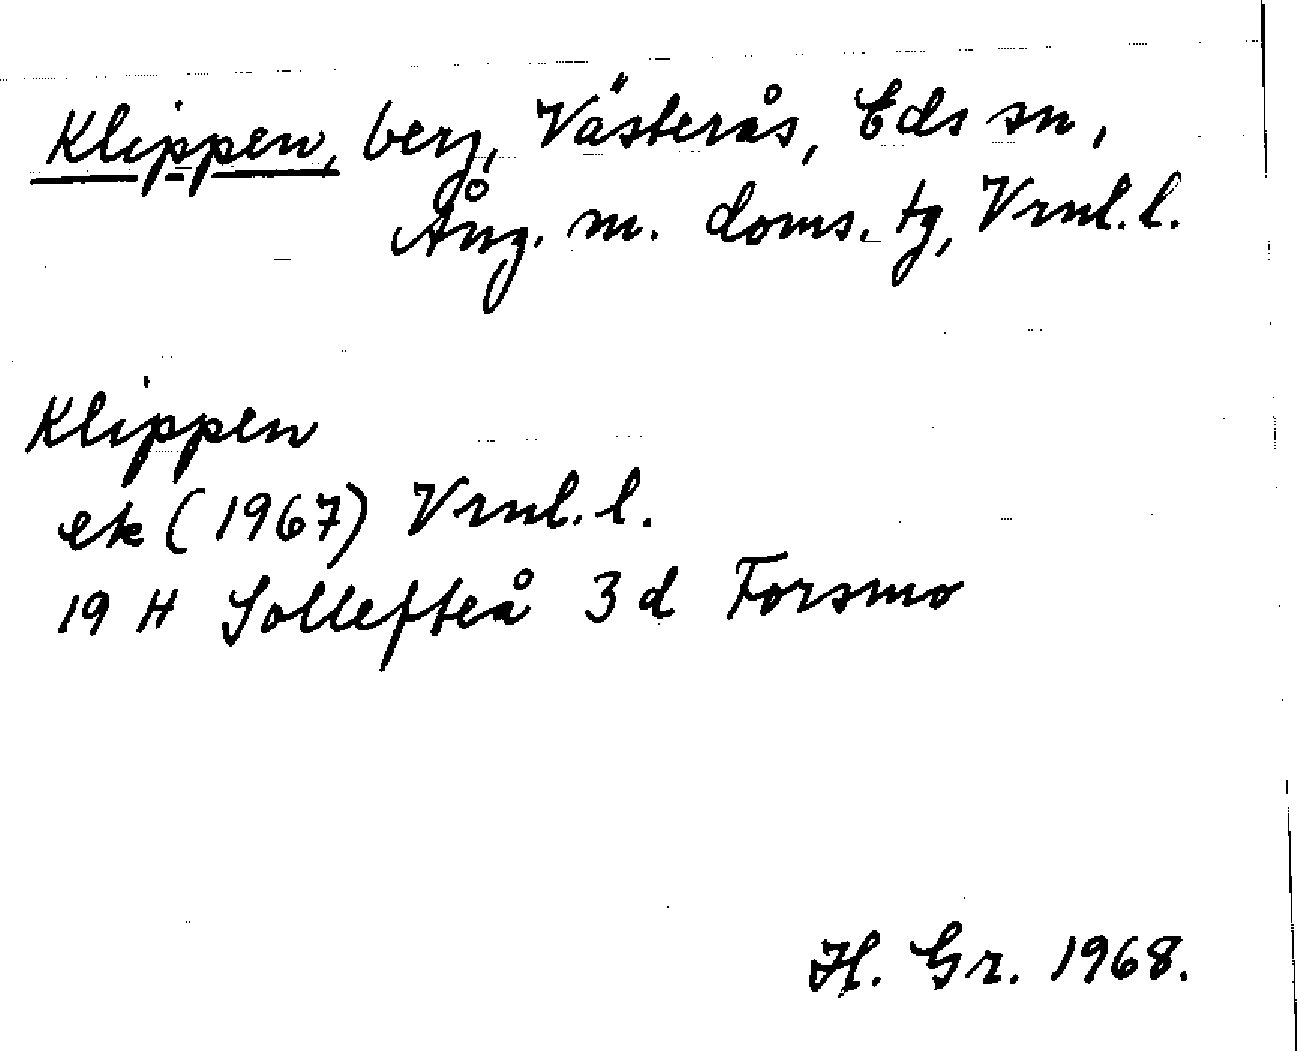 Klippen, berg, Västerås, Eds sn,
Ång. m. doms. tg, Vrnl. l.
Klippen
ek (1967) Vrnl. l.
19 H Sollefteå 3 d Forsmo
H. Gr. 1968.